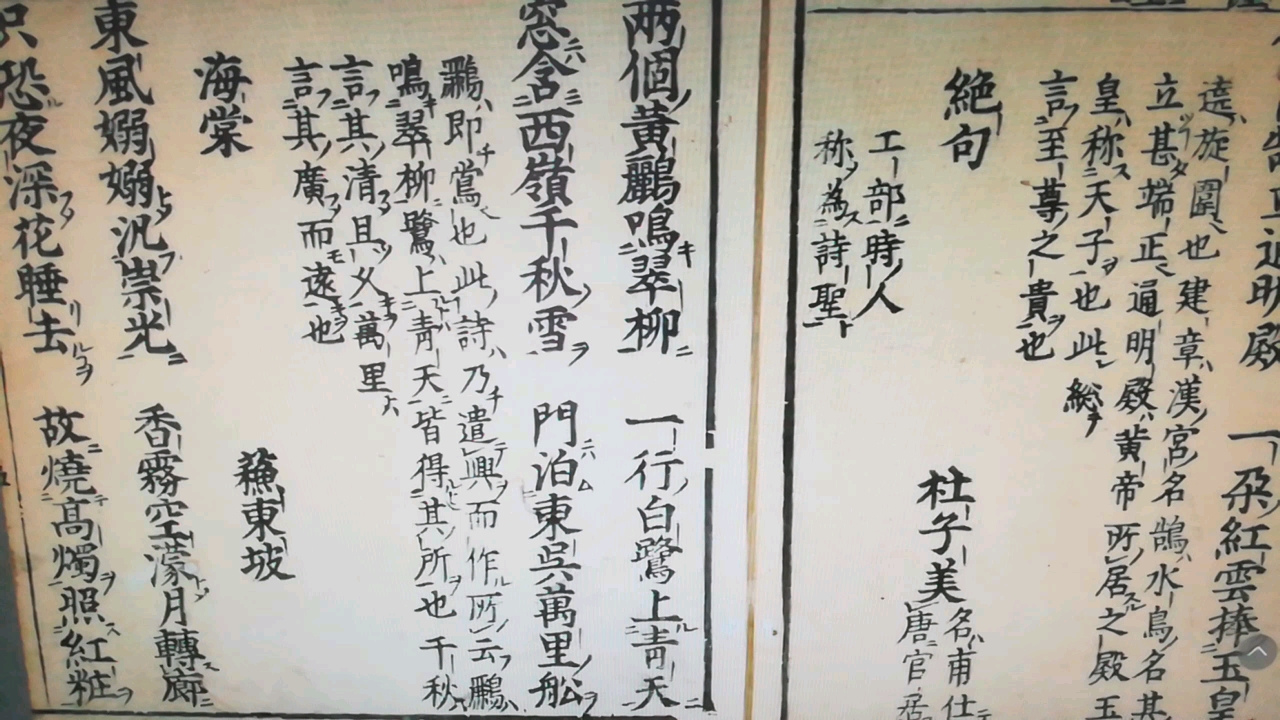 通明殿 一朶紅雲捧玉皇
遶旋圍也建章漢宮名鵠水鳥名其
立甚端正通明殿黄帝所居之殿玉
皇称天子也此総
言至尊之貴也
絶句 杜子美 名甫仕
唐官居
工部時人
称為詩聖
兩個黃鸝鳴翠柳 一行白鷺上青天
窓含西嶺千秋雪 門泊東呉萬里船
鸝即鴬也此詩乃遣興而作所云鸝
鳴翠柳鷺上青天皆得其所也千秋
言其清且久萬里
言其廣而遠也
海棠 蘓東坡
東風嫋嫋汎崇光 香霧空濛月轉廊
只恐夜深花睡去 故燒高燭照紅粧